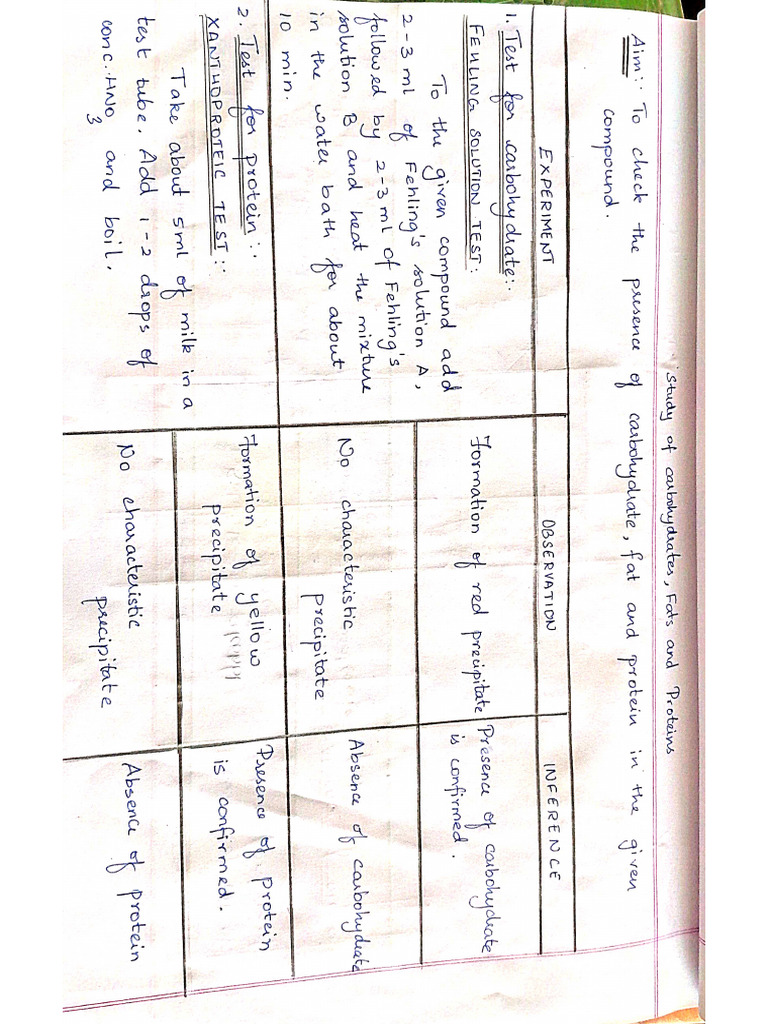 Study of carbohydrates, Fats and Proteins
Aim:- To check the presence of carbohydrate, fat and protein in the given
compound.
EXPERIMENT
OBSERVATION
INFERENCE
1. Test for carbohydrate:-
FEHLING SOLUTION TEST:
To the given compound add
2-3 ml of Fehling's solution A,
followed by 2-3 ml of Fehling's
solution B and heat the mixture
in the water bath for about
10 min.
Formation of red precipitate
Presence of carbohydrate
is confirmed.
No characteristic
precipitate
Absence of carbohydrate
2. Test for protein:-
XANTHOPROTEIC TEST:-
Take about 5ml of milk in a
test tube. Add 1-2 drops of
conc. HNO3 and boil.
Formation of yellow
precipitate
Presence of protein
is confirmed.
No characteristic
precipitate
Absence of protein